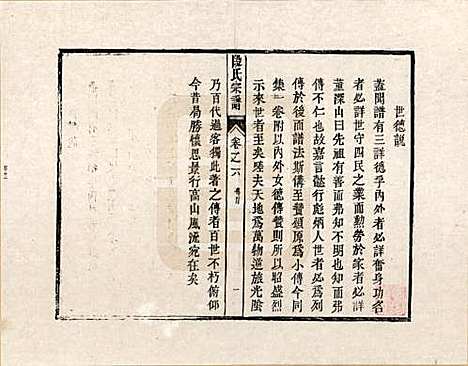 世德說
蓋聞譜有三詳德孚內外者必詳奮身功名
者必詳世守四民之業而勲勞於家者必詳
董深山曰先祖有善而弗知不明知而弗
傳不仁也故嘉言懿行彪炳人世者必爲列
傳於後而譜法斯備至贊頌原爲小傳今同
集一卷附以內外女德傳贊則所以昭盛烈
示來世者至矣陸夫天地爲萬物逆旅光陰
乃百代過客獨此著之傳者百世不朽俯仰
今昔曷勝懷思景行高山風流宛在矣
段氏宗譜
卷之六
一